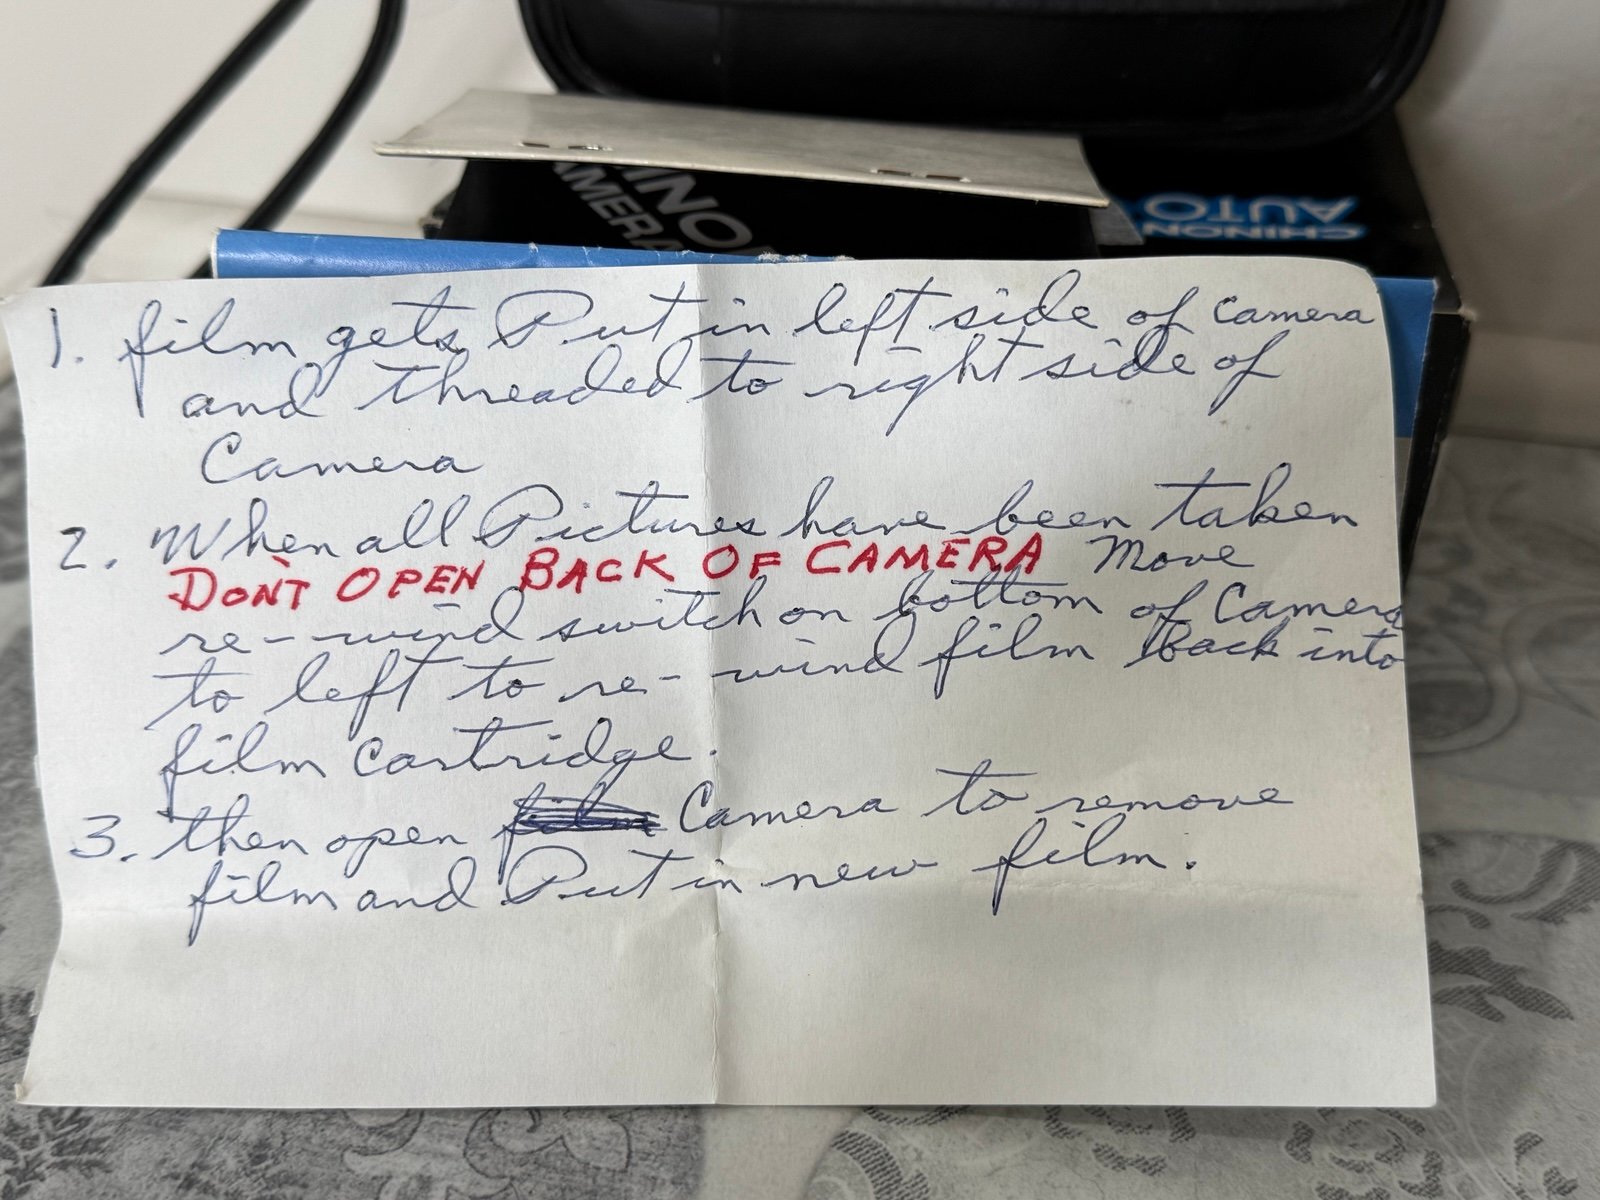 CHINON
AUTO
CAMERA
1. film gets Put in left side of camera
and threaded to right side of
Camera
2. When all Pictures have been taken
DON'T OPEN BACK OF CAMERA Move
re-wind switch on bottom of Camera
to left to re-wind film Back into
film cartridge.
3. then open film Camera to remove
film and Put in new film.